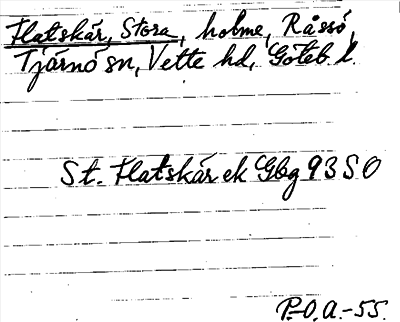 Flatskär, Stora, holme, Råssö,
Tjärnö sn, Vette hd, Göteb. l.
St. Flatskär ek Gbg 93 SO
P.O.A.-55.